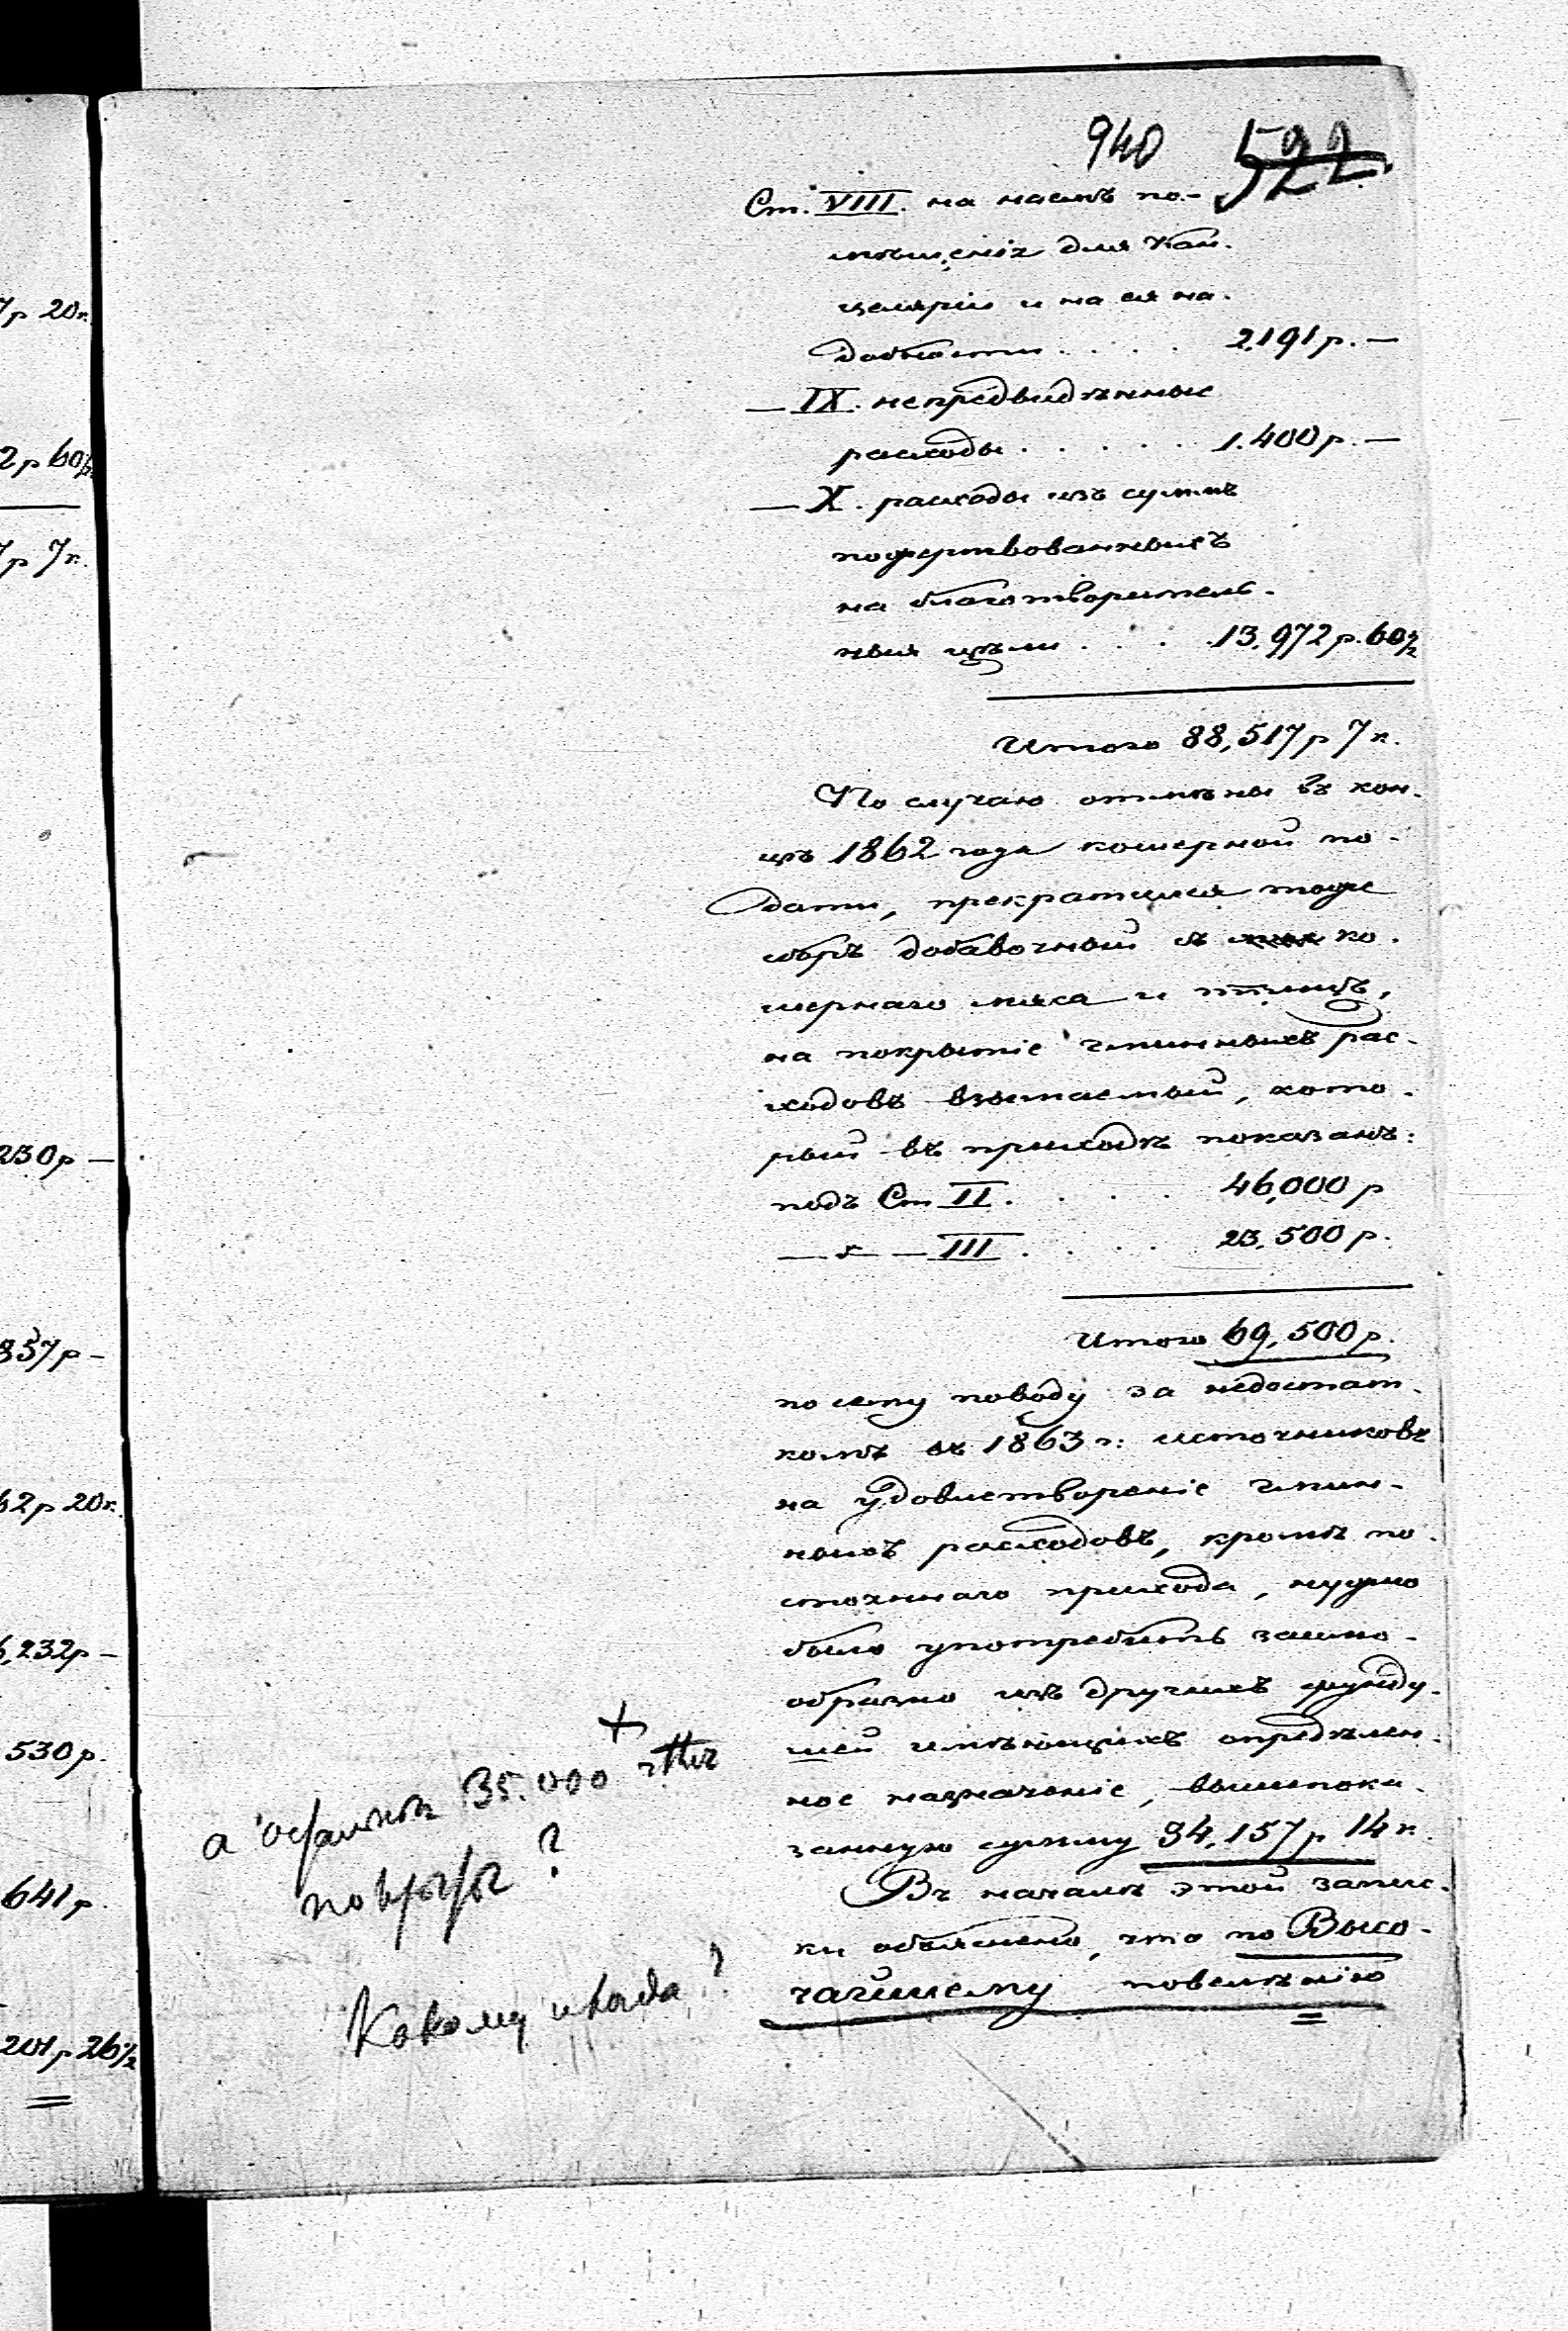 940 522.
Ст. VIII. на наемъ по-
мѣщенія для Кан-
целяріи и на ея на-
добности . . . . 2,191 р. —
— IX. непредвидѣнные
расходы . . . . . 1.400 р. —
— X. расходы изъ суммъ
пожертвованныхъ
на благотворитель-
ныя цѣли . . . . 13,972 р. 60½
Итого 88,517 р 7 к.
По случаю отмѣны въ кон-
цѣ 1862 года кошерной по-
дати, прекратился тоже
сборъ добавочный съ ко-
шернаго мяса и птицъ,
на покрытіе гминныхъ рас-
ходовъ взымаемый, кото-
рый въ приходѣ показанъ:
подъ Ст II . . . . 46,000 р
— " — III . . . . 23,500 р.
Итого 69,500 р.
по сему поводу за недостат-
комъ въ 1863 г: источниковъ
на удовлетвореніе гмин-
ныхъ расходовъ, кромѣ по-
стояннаго прихода, нужно
было употребить заимо-
образно изъ другихъ фунду-
шей имѣющихъ опредѣлен-
ное назначеніе, вышепока-
занную сумму 34,157 р 14 к.
Въ началѣ этой запис-
ки объяснено, что по Высо-
чайшему повелѣнію
а остальные 35.000
покрыты?
Какому
7 р 20 к.
2 р 60½
7 р 7 к.
230 р —
837 р —
62 р 20 к.
6,232 р —
530 р.
641 р.
201 р 26½